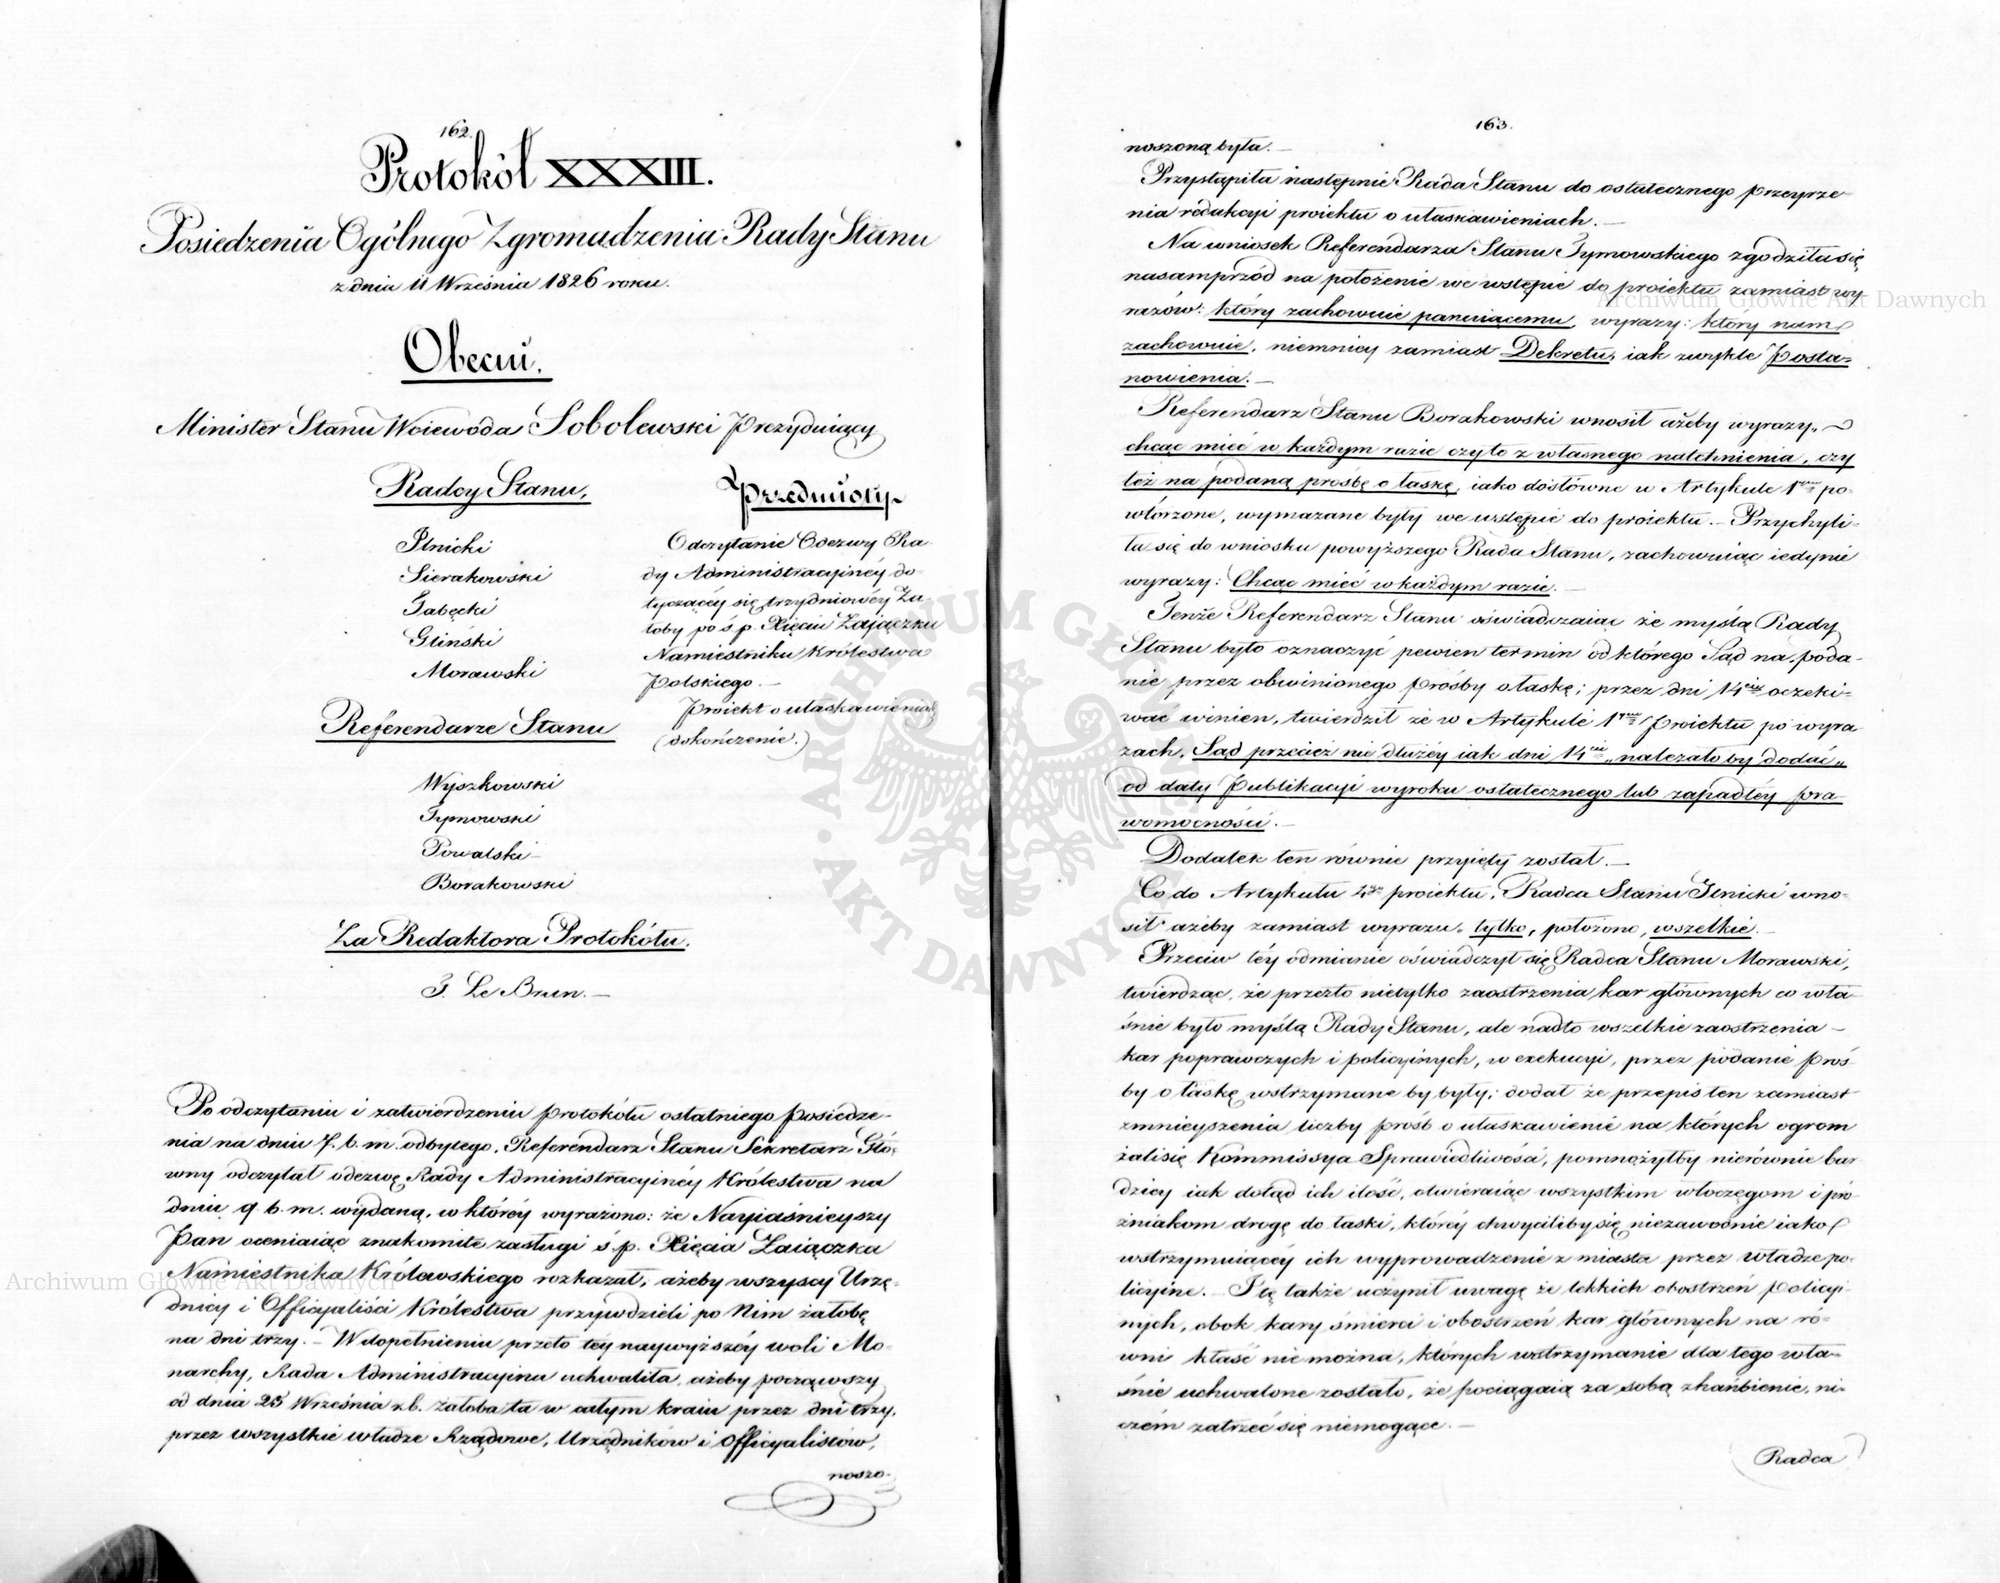 162.
Protokół XXXIII.
Posiedzenia Ogólnego Zgromadzenia Rady Stanu
z dnia 11 Września 1826 roku.
Obecni.
Minister Stanu Woiewoda Sobolewski Prezyduiący
Radcy Stanu.
Ilnicki
Sierakowski
Gliński
Morawski
Referendarze Stanu
Wyszkowski
Tymowski
Powalski
Borakowski
Za Redaktora Protokółu.
J. Le Brun. —
Przedmioty
Odczytanie Odezwy Ra-
dy Administracyinéy do-
tyczącéy się trzydniowéy Ża-
łoby po ś p. Xięciu Zajączku
Namiestniku Królestwa
Polskiego. —
Proiekt o ułaskawieniu
(dokończenie.)
Po odczytaniu i zatwierdzeniu protokółu ostatniego posiedze-
nia na dniu 7. b. m. odbytego, Referendarz Stanu Sekretarz Głó-
wny odczytał odezwę Rady Administracyinéy Królestwa na
dniu 9. b. m. wydaną, w któréy wyrażono: że Nayiaśnieyszy
Pan oceniaiąc znakomite zasługi ś p. Xięcia Zaiączka
Namiestnika Królewskiego rozkazał, ażeby wszyscy Urzę-
dnicy i Officyaliści Królestwa przywdzieli po Nim żałobę
na dni trzy. — W dopełnieniu przeto téy naywyższéy woli Mo-
narchy, Rada Administracyina uchwaliła, ażeby począwszy
od dnia 25 Września r.b. żałoba ta w całym kraiu przez dni trzy,
przez wszystkie władze Rządowe, Urzędników i Officyalistów,
noszo-
163.
noszoną była. —
Przystąpiła następnie Rada Stanu do ostatecznego przeyrze-
nia redakcyi proiektu o ułaskawieniach. —
Na wniosek Referendarza Stanu Tymowskiego zgodziła się
nasamprzód na położenie we wstępie do proiektu zamiast wy
razów: który zachowuie panuiącemu, wyrazy: który nam
zachowuie, niemniey zamiast Dekretu, iak zwykle Posta-
nowienia. —
Referendarz Stanu Borakowski wnosił ażeby wyrazy, „
chcąc mieć w każdym razie czyto z własnego natchnienia, czy
też na podaną prośbę o łaskę, iako dosłówne w Artykule 1wszym po-
wtórzone, wymazane były we wstępie do proiektu. — Przychyli-
ła się do wniosku powyższego Rada Stanu, zachowuiąc iedynie
wyrazy: Chcąc mieć w każdym razie. —
Tenże Referendarz Stanu oświadczaiąc że myślą Rady
Stanu było oznaczyć pewien termin od którego Sąd na poda-
nie przez obwinionego prośby o łaskę; przez dni 14cie oczeki-
wać winien, twierdził że w Artykule 1wszym Proiektu po wyra-
zach, Sąd przecież nie dłużéy iak dni 14cie „należało by dodać „
od daty Publikacyi wyroku ostatecznego lub zapadłéy pra-
womocności. —
Dodatek ten równie przyięty został. —
Co do Artykułu 2go proiektu, Radca Stanu Ilnicki wno-
sił ażeby zamiast wyrazu, tylko, położono, wszelkie. —
Przeciw téy odmianie oświadczył się Radca Stanu Morawski,
twierdząc, że przezto nietylko zaostrzenia kar głównych co wła-
śnie było myślą Rady Stanu, ale nadto wszelkie zaostrzenia —
kar poprawczych i policyinych, w exekucyi, przez podanie proś-
by o łaskę wstrzymane by były; dodał że przepis ten zamiast
zmnieyszenia liczby próśb o ułaskawienie na których ogrom
żali się Kommissya Sprawiedliwości, pomnożyłby nierównie bar
dziey iak dotąd ich ilość, otwieraiąc wszystkim włoczęgom i pró
żniakom drogę do łaski, któréy chwyciliby się niezawodnie iako
wstrzymuiącéy ich wyprowadzenie z miasta przez władze po-
licyine. — Tę także uczynił uwagę że lekkich obostrzeń policyi-
nych, obok kary śmierci i obostrzeń kar głównych na ró-
wni kłaść nie można, których wstrzymanie dla tego wła-
śnie uchwalone zostało, że pociągaią za sobą zhańbienie, ni-
czém zatrzeć się niemogące. —
Radca
Archiwum Główne Akt Dawnych
Archiwum Główne Akt Dawnych
ARCHIWUM GŁÓWNE AKT DAWNYCH